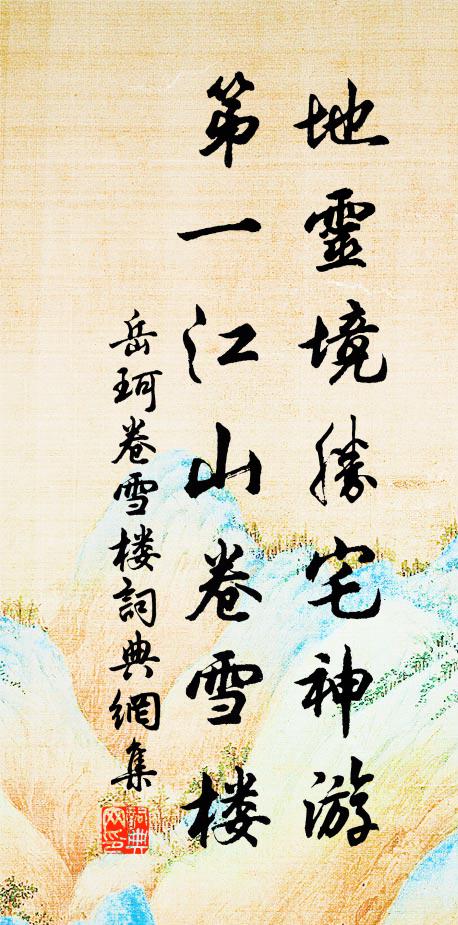 地靈境勝宅神游
第一江山卷雪楼
岳珂卷雪楼詞典網集